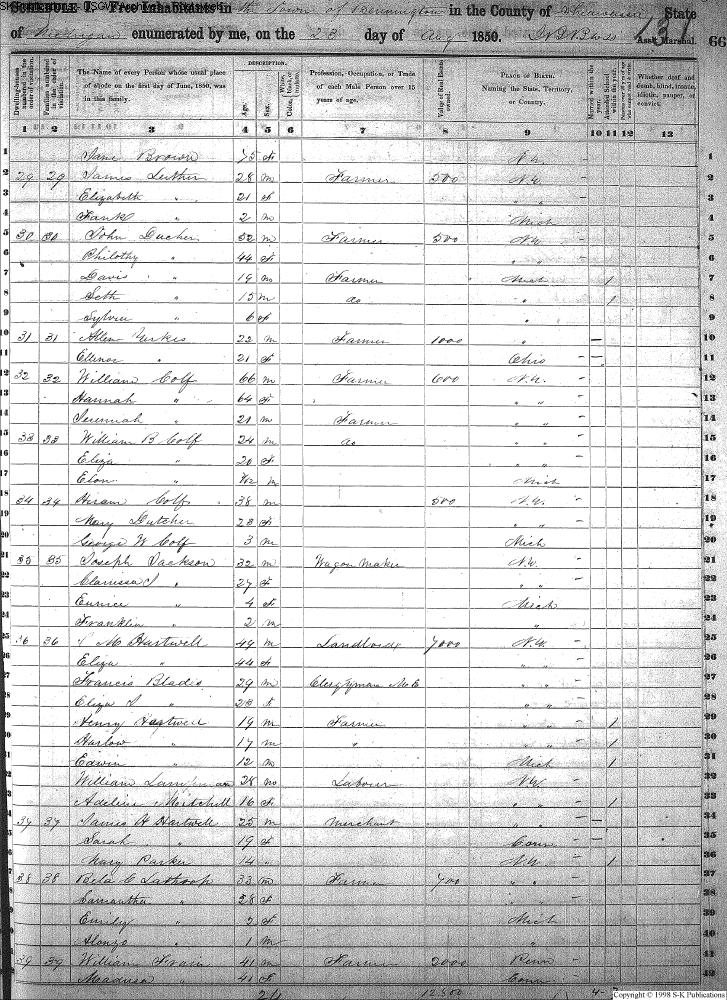 SCHEDULE I. Free Inhabitants in the Town of Bennington in the County of Shiawassee State
of Michigan enumerated by me, on the 28 day of Aug 1850. Ass't Marshal. 66
131
Dwelling-houses numbered in the order of visitation.
Families numbered in the order of visitation.
The Name of every Person whose usual place of abode on the first day of June, 1850, was in this family.
DESCRIPTION.
Age.
Sex.
Color,
Profession, Occupation, or Trade of each Male Person over 15 years of age.
Value of Real Estate owned.
PLACE OF BIRTH. Naming the State, Territory, or Country.
Married within the year.
Attended School within the year.
Whether deaf and dumb, blind, insane, idiotic, pauper, or convict.
1 2 3 4 5 6 7 8 9 10 11 12 13
1 Jane Brown 75 f N.Y. 1
2 29 29 James Luther 28 m Farmer 500 N.Y. 2
3 Elizabeth " 21 f " " 3
4 Frank " 2 m Mich 4
5 30 30 John 52 m Farmer 500 N.Y. 5
6 Philothy " 44 f " " 6
7 Davis " 19 m Farmer Mich 1 7
8 Seth " 15 m do " 1 8
9 " 6 f " 9
10 31 31 22 m Farmer 1000 " 10
11 " 21 f Ohio 11
12 32 32 William Colf 66 m Farmer 600 N.Y. 12
13 Hannah " 64 f " " 13
14 Jeremiah " 21 m Farmer " " 14
15 33 33 William B Colf 24 m do " " 15
16 Eliza " 20 f " " 16
17 Elon " /12 m Mich 17
18 34 34 Hiram Colf 38 m 500 N.Y. 18
19 Mary Dutcher 23 f " " 19
20 George W Colf 3 m Mich 20
21 35 35 Joseph Jackson 32 m Wagon Maker N.Y. 21
22 Clarissa " 27 f " " 22
23 Eunice " 4 f Mich 23
24 Franklin " 2 m " 24
25 36 36 M Hartwell 49 m Landlord 7000 N.Y. 25
26 Eliza " 44 f " " 26
27 Francis 29 m Clergyman M.E " " 27
28 Eliza " 23 f " " 28
29 Henry Hartwell 19 m Farmer " " 1 29
30 Harlow " 17 m " " " 1 30
31 Edwin " 12 m Mich 1 31
32 William 28 m Labour N.Y. 32
33 Adeline Mitchell 16 f " " 1 33
34 37 37 James H Hartwell 25 m Merchant " 34
35 Sarah " 19 f Conn 35
36 Mary Parker 14 " N.Y. 1 36
37 38 38 Bela C Lathrop 33 m Farmer 700 " " 37
38 Samantha " 28 f " " 38
39 Emily " 2 f Mich 39
40 Alonzo " 1 m " 40
41 39 39 William Frain 41 m Farmer 2000 Penn 41
42 41 f Conn 42
Copyright © 1998 S-K Publications